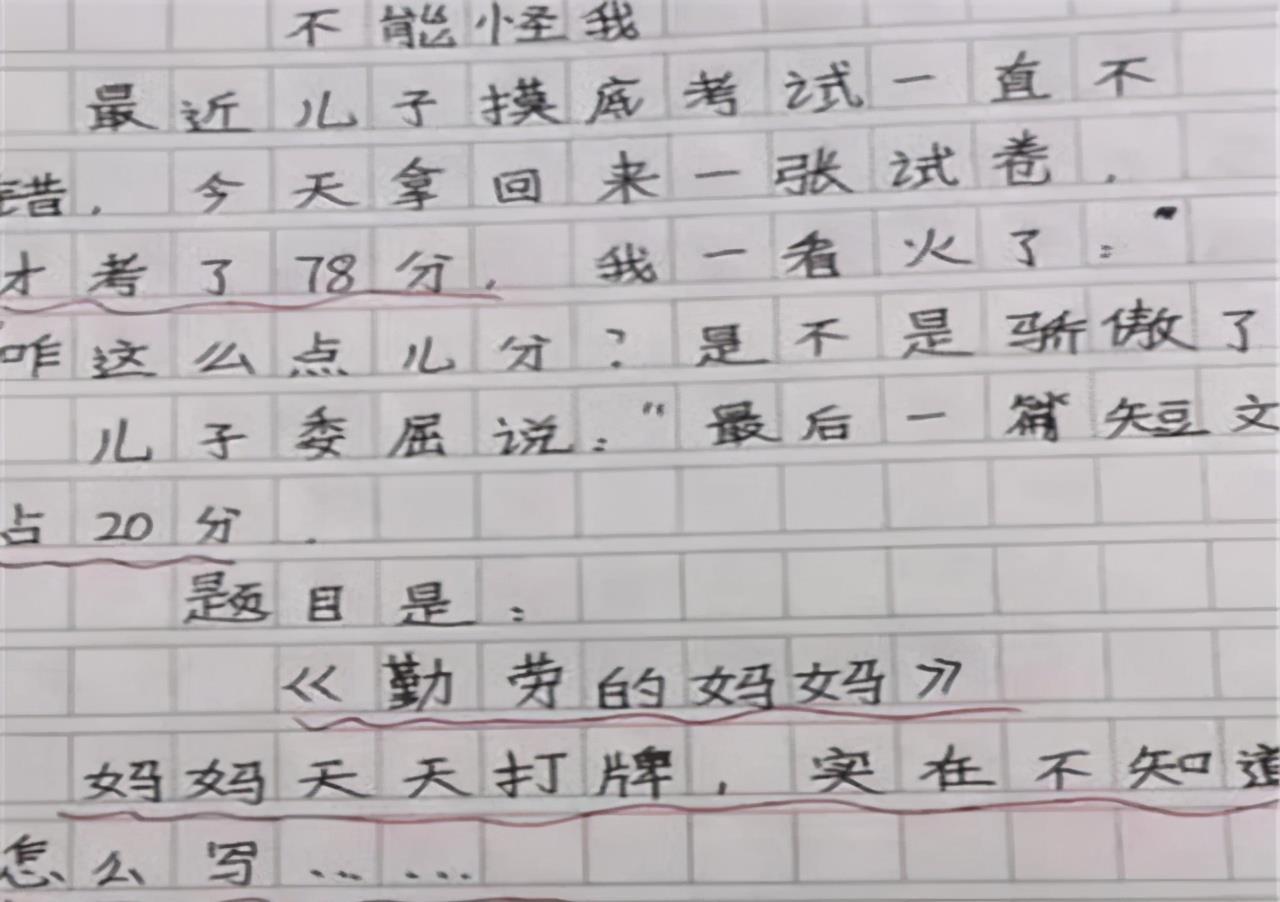 不能怪我
最近儿子摸底考试一直不
错.今天拿回来一张试卷.
才考了78分.我一看火了:"
咋这么点儿分?是不是骄傲了
儿子委屈说:"最后一篇短文
占20分.
题目是:
《勤劳的妈妈》
妈妈天天打牌,实在不知道
怎么写……